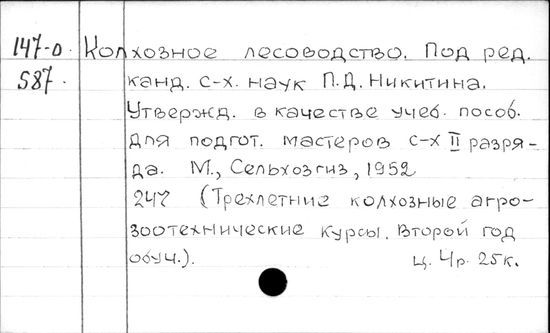 147-D Колхозное лесоводство. Под ред.
S87. канд. с-х. наук П.Д. Никитина.
Утвержд. в качестве учеб. пособ.
для подгот. мастеров с-х II разря-
да. М., Сельхозгиз, 1952
247 (Трехлетние колхозные агро-
зоотехнические курсы. Второй год
обуч.). ц. 4р. 25к.